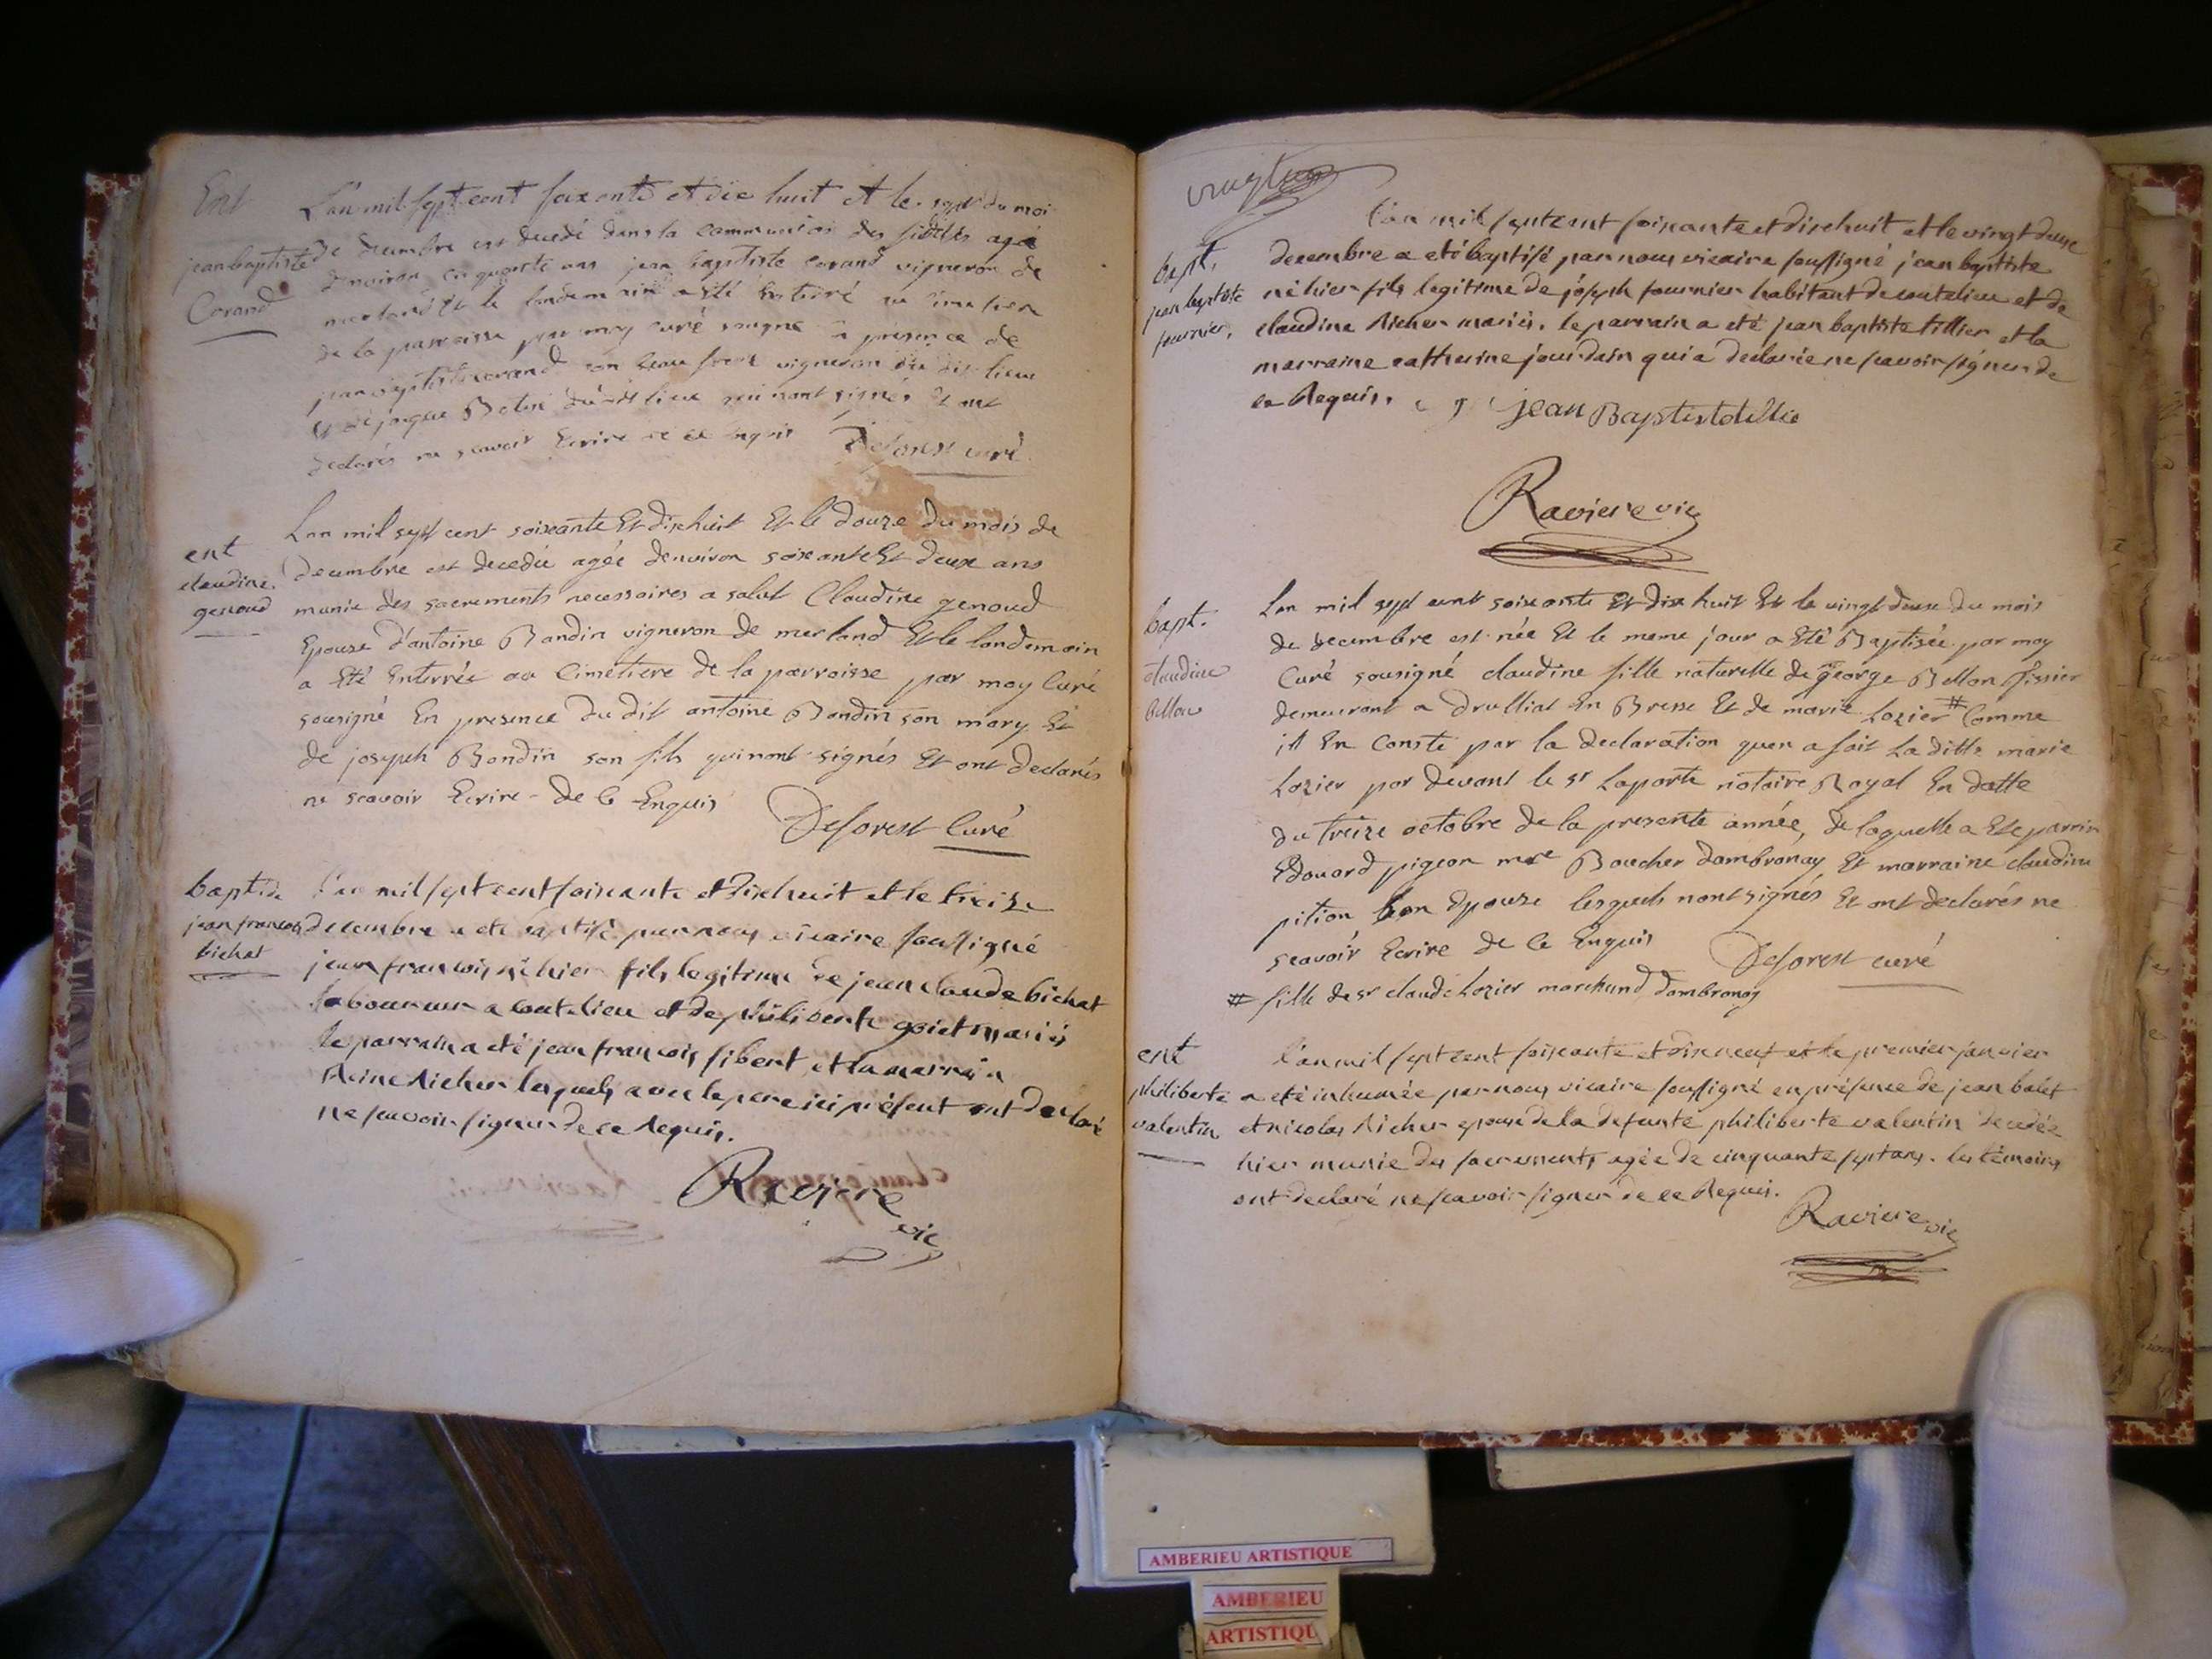 Ent
jean baptiste
Corand
L'an mil sept cent soixante et dix huit et le sept du moi
de decembre est decedé dans la communion des fidelles agé
denviron cinquante ans jean baptiste corand vigneron de
merland et le landemain a eté enterré au cimetiere
de la parroisse par moy curé sousigné en presence de
jean baptiste corand son beau frere vigneron du dit lieu
et de jacque du dit lieu qui nont signés et ont
declarés ne scavoir Ecrire de ce enquis
Deforest curé
ent
claudine
genoud
Lan mil sept cent soixante Et dix huit Et le douze du mois de
decembre est decedée agée denviron soixante Et deux ans
munie des sacrements necessaires a salut Claudine genoud
Epouse d'antoine Bandin vigneron de merland Et le landemain
a Eté Enterrée au Cimetiere de la parroisse par moy Curé
sousigné En presence du dit antoine Bandin son mary Et
de joseph Bandin son fils qui nont signés Et ont declarés
ne scavoir Ecrire de ce Enquis
Deforest Curé
bapt. de
jean francois
bichat
l'an mil sept cent soixante et dix huit et le treize
decembre a eté baptisé par nous vicaire soussigné
jean francois né hier fils legitime de jean claude bichat
laboureur a coutelieu et de philiberte goiet mariés
le parrain a eté jean francois sibert et la marrain
Reine Richer lesquels avec le pere ici présent ont declaré
ne scavoir signer de ce Requis.
Raviere
vic
vingt un
bapt.
jean baptiste
fournier.
l'an mil sept cent soixante et dix huit et le vingt deux
decembre a eté baptisé par nous vicaire soussigné jean baptiste
né hier fils legitime de joseph fournier habitant de coutelieu et de
claudine Richer mariés. le parrain a eté jean baptiste tillier et la
marraine catherine jourdain qui a declarée ne scavoir signer de
ce Requis.
jean Baptiste tillie
Raviere vic
bapt.
claudine
bellon
Lan mil sept cent soixante Et dix huit Et le vingt deux du mois
de decembre est née Et le meme jour a Eté Baptisée par moy
Curé sousigné claudine fille naturelle de george Bellon
demeurant a druillat En Bresse Et de marie Lozier # Comme
il En Conste par la declaration quen a fait La ditte marie
Lozier par devant le sr Laporte notaire Royal En datte
du treize octobre de la presente année, de laquelle a Eté parrin
Edouard pigeon mre Boucher dambronay Et marraine claudine
pition son Epouse lesquels nont signés Et ont declarés ne
scavoir Ecrire de ce Enquis
Deforest curé
# fille de sr claude Lozier marchand dambronay
ent
philiberte
valentin
l'an mil sept cent soixante et dix neuf et le premier janvier
a eté inhumée par nous vicaire soussigné en présence de jean bolet
et nicolas Richer epoux de la defunte philiberte valentin decedée
hier munie des sacrements agée de cinquante sept ans. les témoins
ont declaré ne scavoir signer de ce Requis.
Raviere vic
AMBERIEU ARTISTIQUE
AMBERIEU
ARTISTIQU